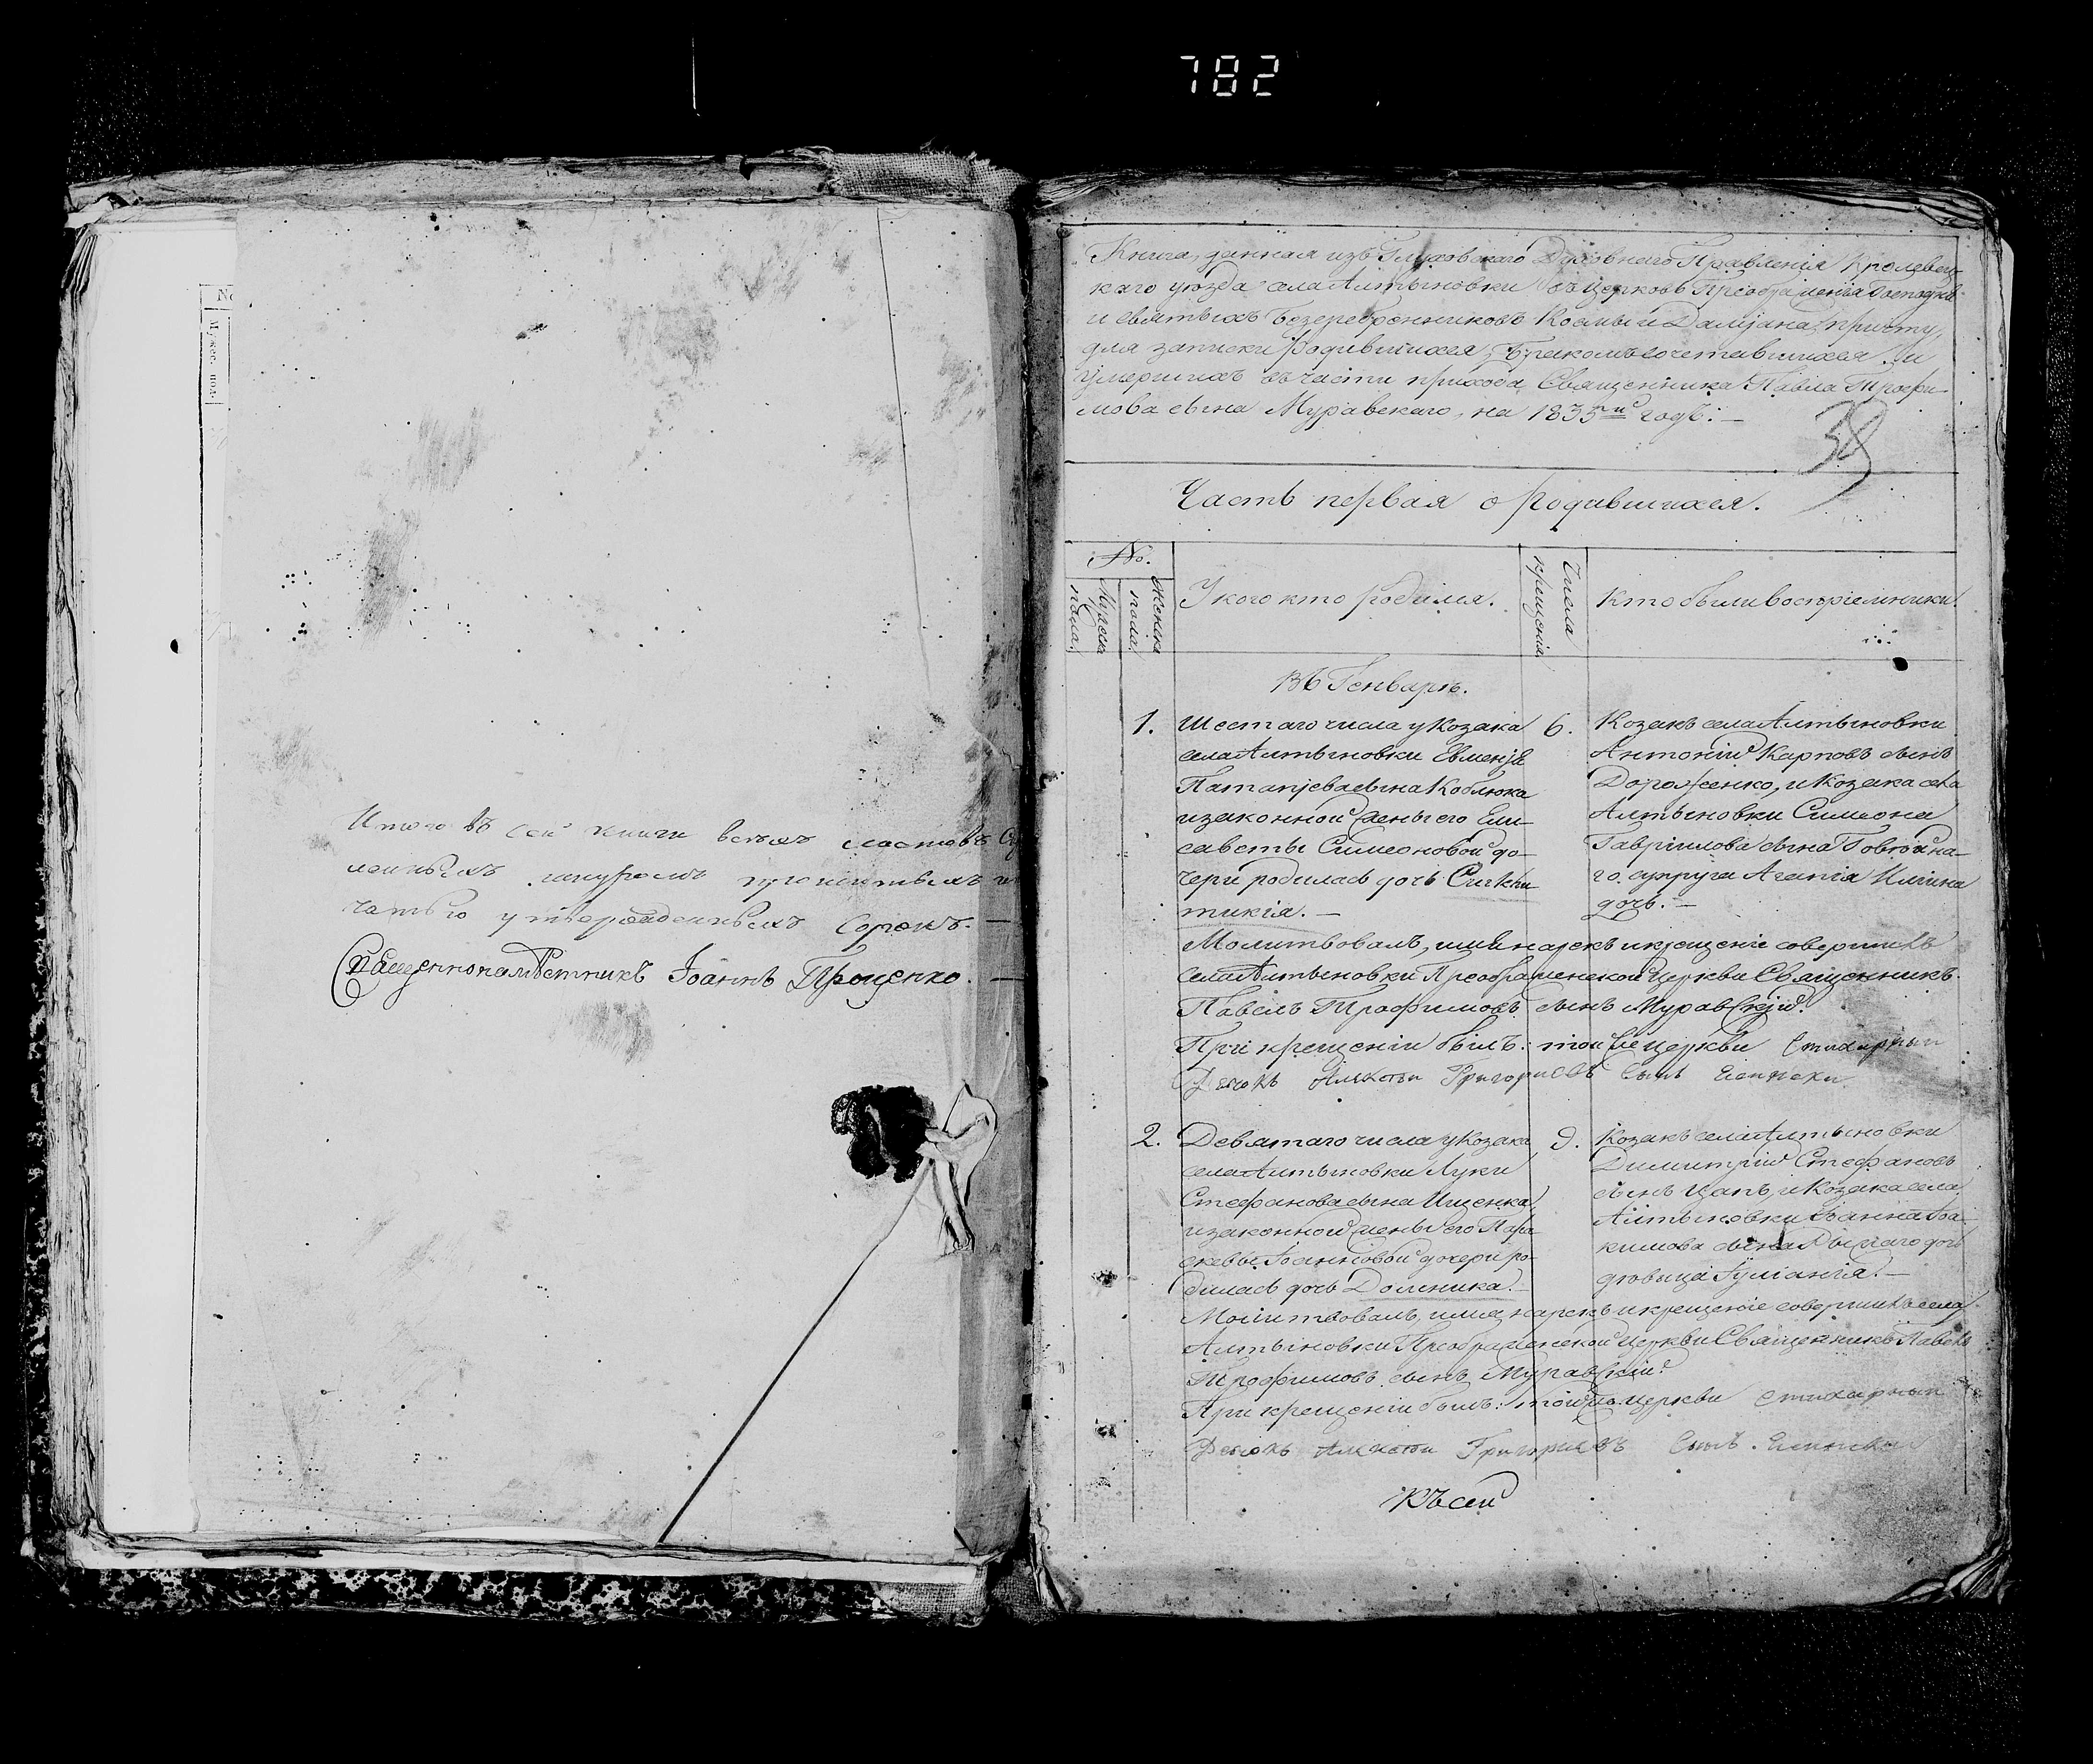 782
No
Мужес. пол.
Итого въ сей книги всѣхъ листовъ
шнуромъ
утвержденныхъ сорокъ.—
Священнонамѣстникъ Іоаннъ Проценко.—
Книга, данная изъ Глуховскаго Духовнаго Правленія Кролевец-
каго уѣзда села Алтыновки въ церковь Преображенія Господня
и святыхъ Безсребренниковъ Космы и Даміана причту,
для записки родившихся, бракомъ сочетавшихся и
умершихъ въ части прихода Священника Павла Трофи-
мова сына Муравскаго, на 1835й годъ.—
38
Часть первая о родившихся.
No.
Мужеска пола.
Женска пола.
У кого кто родился.
Числа крещенія.
Кто были воспріемники.
Въ Генварѣ.
1.
Шестаго числа у Козака
села Алтыновки Евменія
Патапіева сына Коблюка
изаконной жены его Ели-
саветы Симеоновой до-
чери родилась дочь Синкли-
тикія.—
6.
Козакъ села Алтыновки
Антоній Карповъ сынъ
Дорошенко, и Козака села
Алтыновки Симеона
Гавріилова сына
го супруга Агафія Ильина
дочь.—
Молитвовалъ, имя нарекъ и крещеніе совершилъ
села Алтыновки Преображенской Церкви Священникъ
Павелъ Трофимовъ сынъ Муравскій.
При крещеніи былъ: той же церкви Стихарный
Дьякъ Алексѣй Григориевъ сынъ
2.
Девятаго числа у Козака
села Алтыновки Луки
Стефанова сына Ищенка,
изаконной жены его Пара-
скевы Іоанновой дочери ро-
дилась дочь Домника.—
9.
Козакъ села Алтыновки
Димитрій Стефановъ
сынъ Цапъ, и Козака села
Алтыновки Іоанна Іоа-
кимова сына дочь
дѣвица Іуліанія.—
Молитвовалъ, имя нарекъ и крещеніе совершилъ села
Алтыновки Преображенской Церкви Священникъ Павелъ
Трофимовъ сынъ Муравскій.
При крещеніи былъ: той же церкви стихарный
Дьякъ Алексѣй Григориевъ сынъ
Къ сей